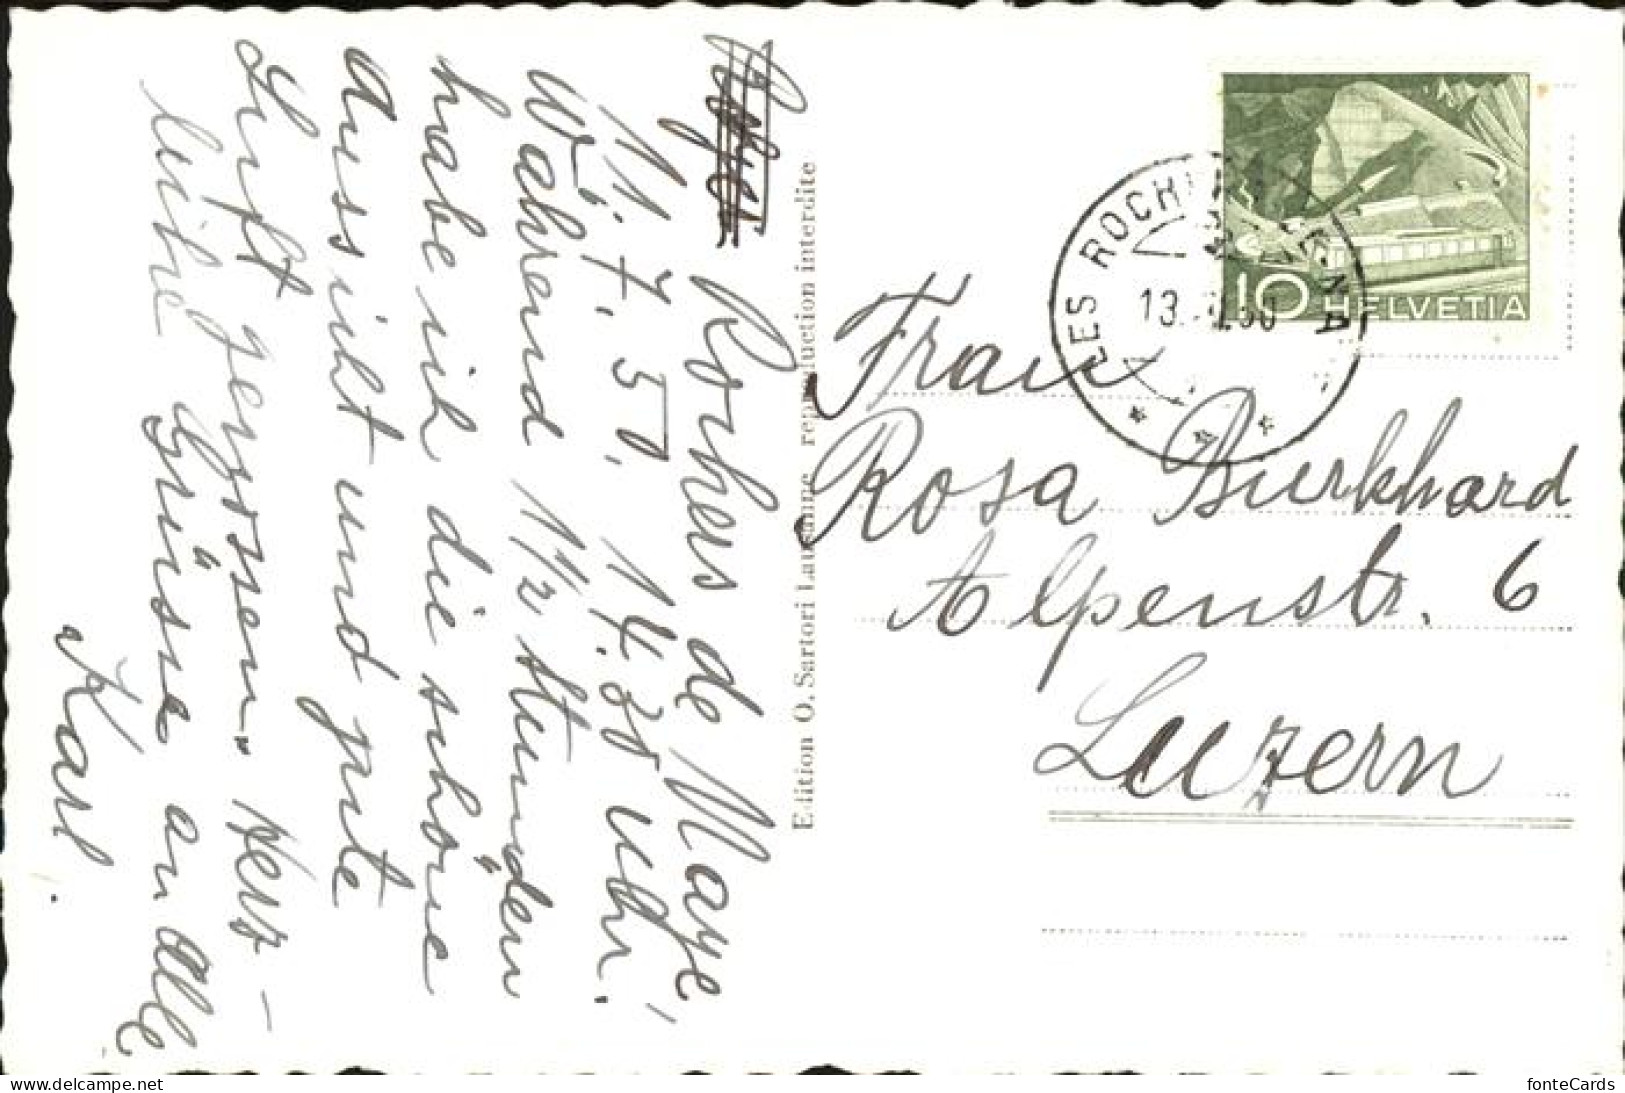 Rochers de Naye,
11.7.50. 14.30 Uhr.
Während 1 1/2 Stunden
habe ich die schöne
Aussicht und gute
Luft genossen. Herz-
liche Grüsse an Alle
Karl.
Edition O. Sartori Lausanne reproduction interdite
LES ROCHERS
13. 50
10 HELVETIA
Frau
Rosa Burkhard
Alpenstr. 6
Luzern
www.delcampe.net
fonteCards